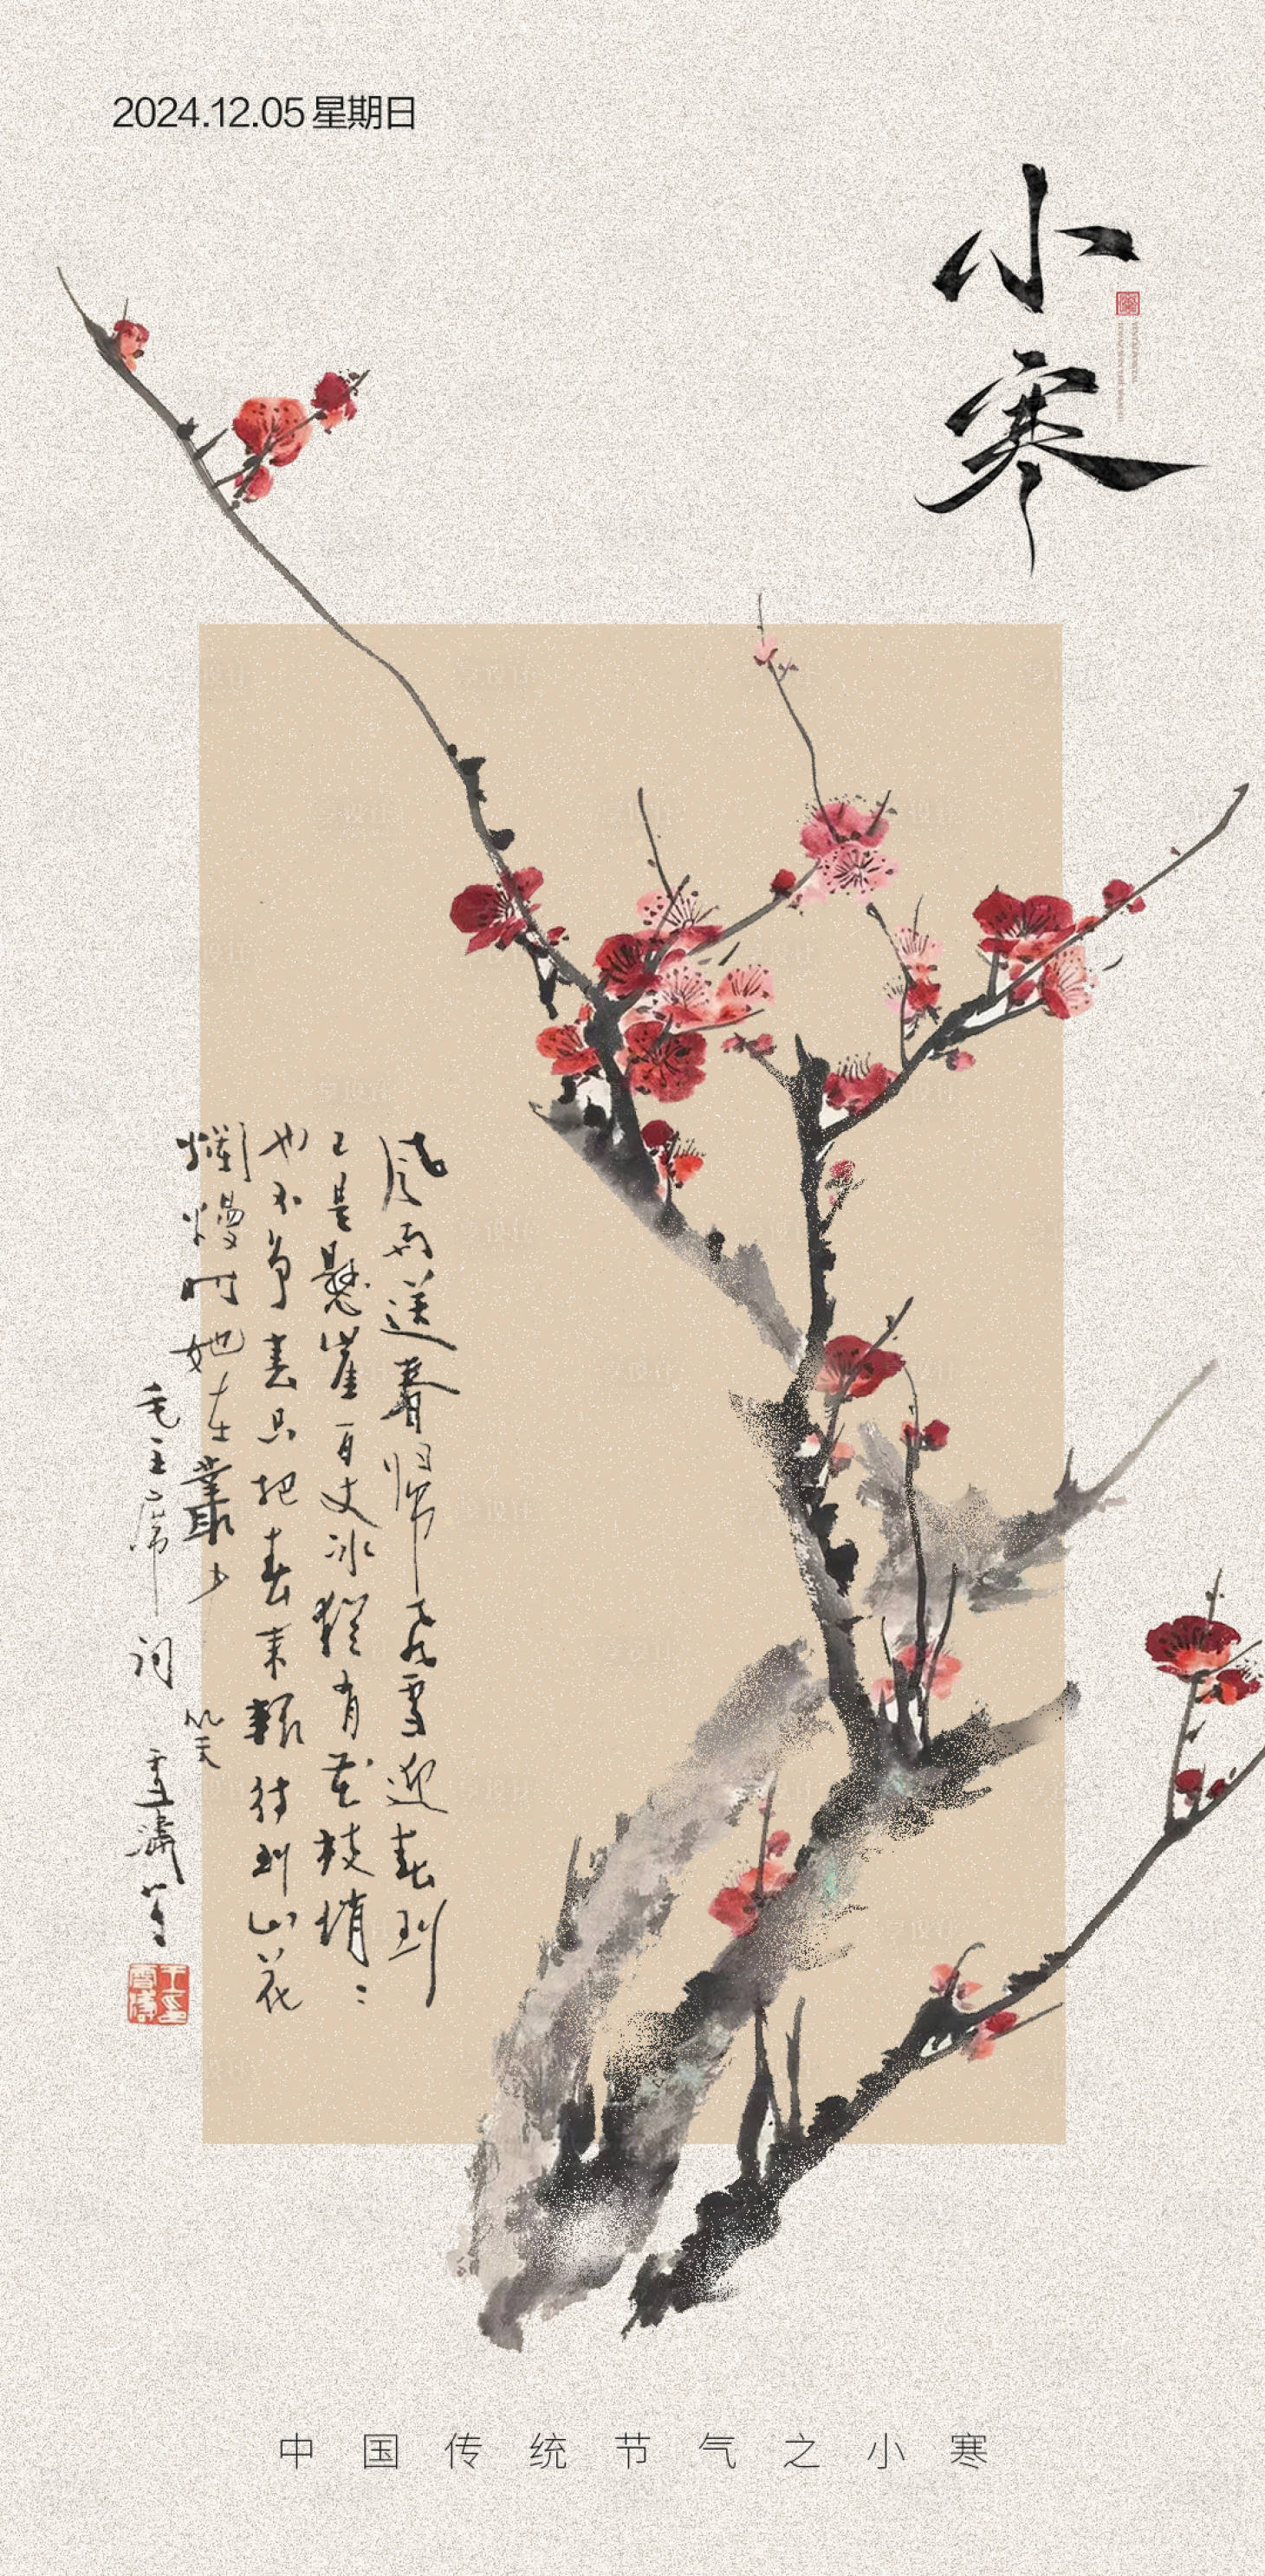 2024.12.05 星期日
小
寒
風雨送春歸飛雪迎春到
已是懸崖百丈冰猶有花枝俏〻
也不争春只把春来報待到山花
爛熳时她在叢中
笑
毛主席词
雪濤
中国传统节气之小寒